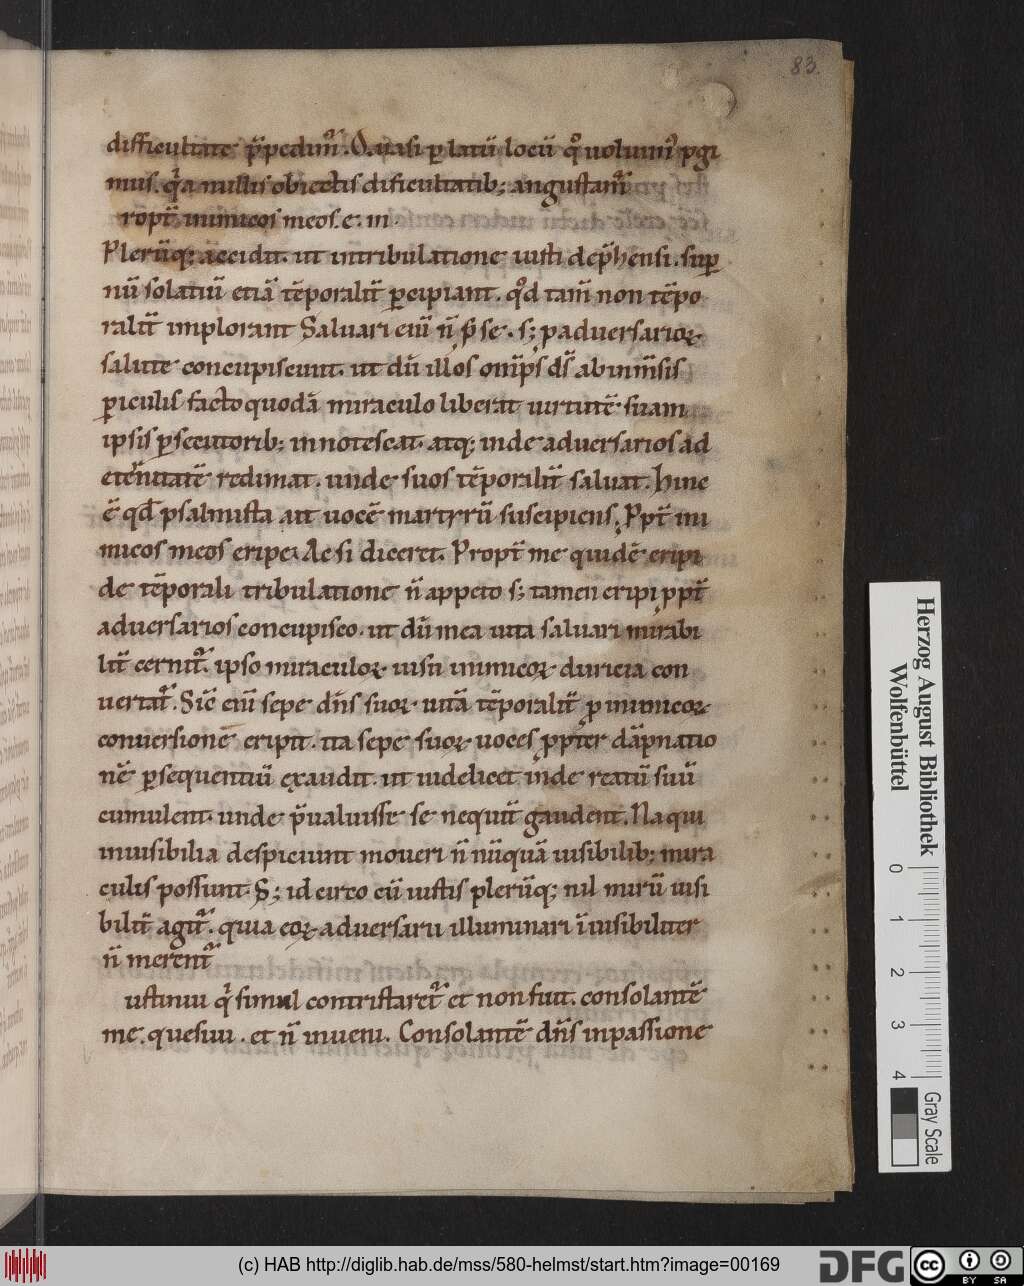 83.
difficultate p̄pedim᷑. Q uasi ꝑ latū locū qͦ uolum᷒ ꝑgi
mus. qͥa nullis obiectis dificultatib; angustam᷑
ropt̄ inimicos meos. e. m.
Plerūq; accidit. ut in tribulatione iusti dep̄hensi. sup
nū solatiū etiā tēporalit̄ ꝑcipiant. qͦd tam̄ non tēpo
ralit̄ implorant Saluari eni̅ n̄ ꝓ se. s; ꝓ aduersarioꝝ
salute concupiscunt. ut dū illos om̅ps d̅s ab inm̅sis
ꝑiculis facto quodā miraculo liberat uirtutē suam
ipsis ꝑsecutorib; innotescat. atq; inde aduersarios ad
et̄nitatē redimat. unde suos tēporalit̄ saluat. Hinc
ē qd̄ psalmista ait uocē martyrū suscipiens. Ppt̄ ini
micos meos eripe. Ac si diceret. Propt̄ me quidē eripi
de tēporali tribulatione n̄ appeto s; tamen eripi ꝓpt̄
aduersarios concupisco. ut dū mea uita saluari mirabi
lit̄ cernit᷑. ipso miraculoꝝ uisu inimicoꝝ duricia con
uertat᷑. Sic̄ eni̅ sepe dn̄s suoꝝ uitā tēporalit̄ ꝓ inimicoꝝ
conuersione eripit. ita sepe suoꝝ uoces ꝓpter dāpnatio
nē ꝑsequentiū exaudit. ut uidelicet inde reatū suū
cumulent. unde p̄ualuisse se nequit̄ gaudent. Na qui
inuisibilia despiciunt moueri n̄ nūquā uisibilib; mira
culis possunt. S; id circo cū iustis plerūq; nil mirū uisi
bilit̄ agit᷑. quia eoꝝ aduersarii illuminari īuisibiliter
n̄ merent᷑
ustinui qͥ simul contristaret᷑ et non fuit. consolantē
me. quesiui. et n̄ inueni. Consolantē dn̄s in passione
Herzog August Bibliothek
Wolfenbüttel
0 1 2 3 4
Gray Scale
(c) HAB http://diglib.hab.de/mss/580-helmst/start.htm?image=00169
DFG
CC BY SA